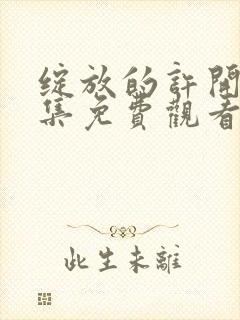 綻放的許開
集免費觀看
此生未離